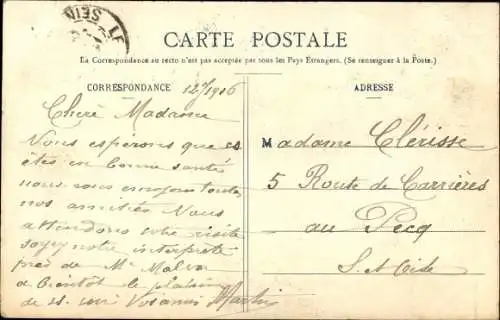 CARTE POSTALE
La Correspondance au recto n'est pas acceptée par tous les Pays Étrangers. (Se renseigner à la Poste.)
CORRESPONDANCE
ADRESSE
Chere Madame
Nous esperons que
êtes en bonne santé
nous vous envoyons toutes
nos amitiés Nous
attendons votre visite
soyez notre interprete
près de Me
a bientôt le plaisir
de Vos amis Martin
Madame Clérisse
5 Route de Carrières
au Pecq
S. et Oise